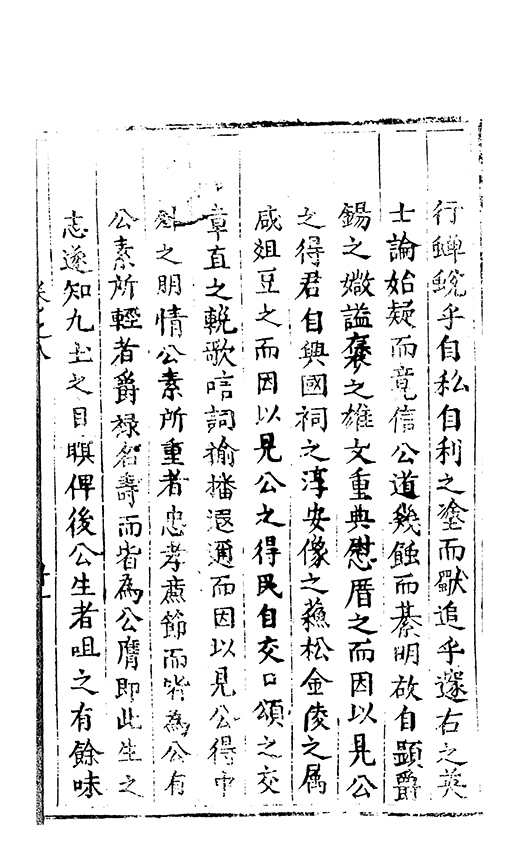 行蟬蛻乎自私自利之塗而猒追乎邃右之英
士論始疑而竟信公道幾蝕而綦明故自顯爵
錫之媺謚褒之雄文重典慰厝之而因以見公
之得君自興國祠之淳安像之蘓松金陵之属
咸俎豆之而因以見公之得民自交口頌之交
章直之輓歌唁詞揄播遐邇而因以見公得中
之明情公素所重者忠孝亷節而皆為公有
公素所輕者爵祿名壽而皆為公膺即此生之
志遂知九土之目瞑俾後公生者咀之有餘味